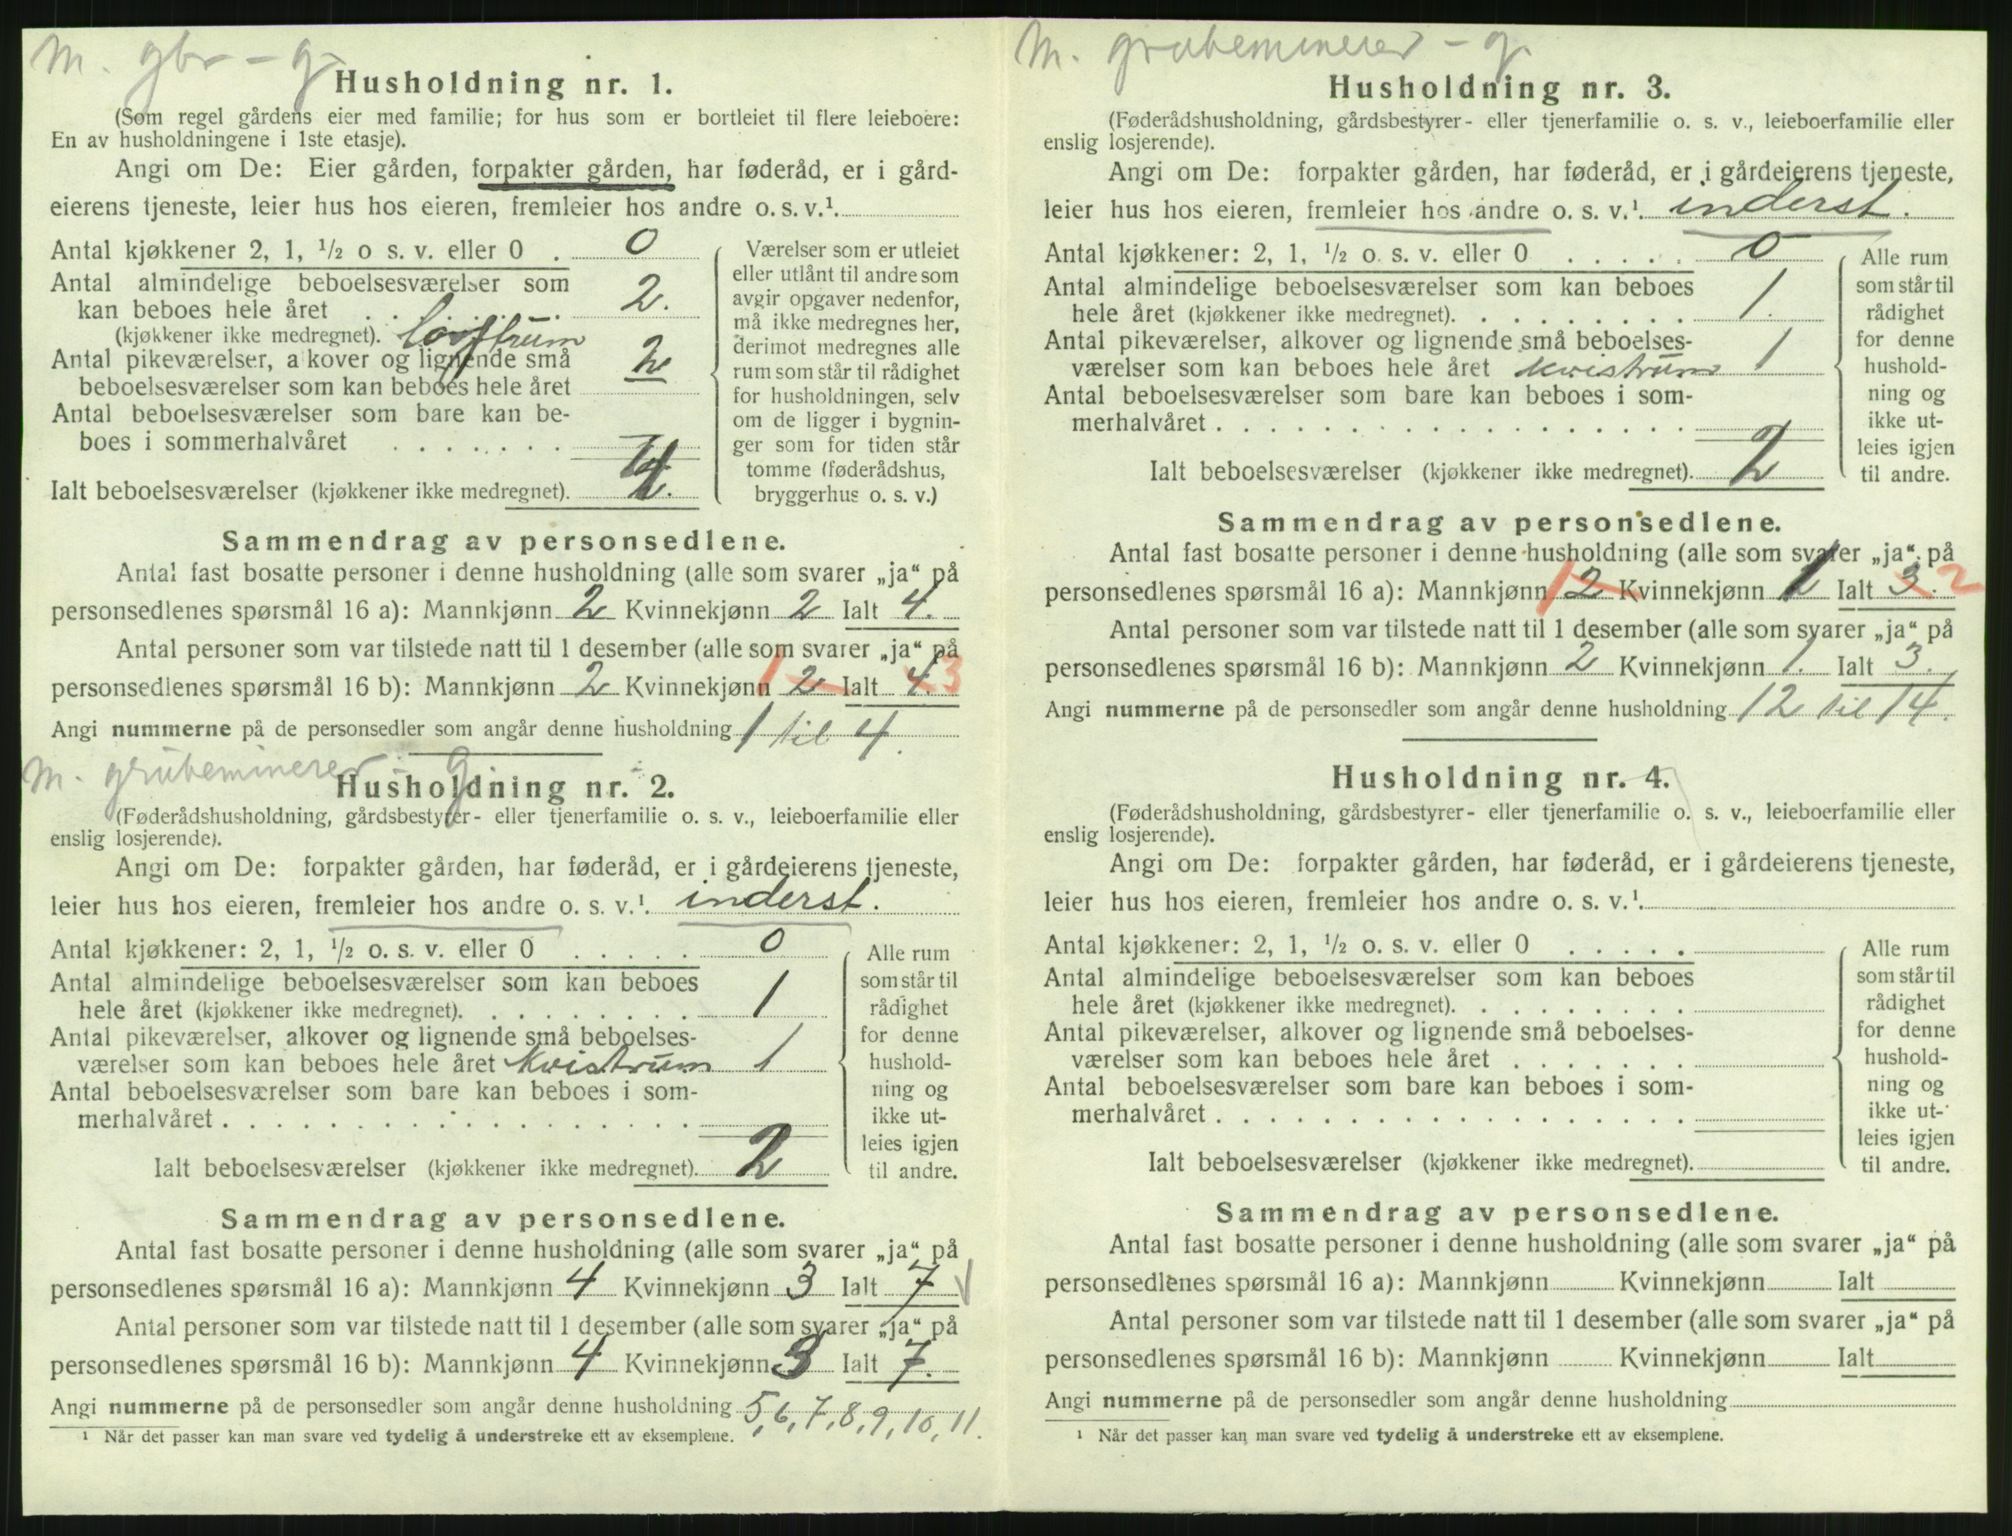 M. gbr - g.
Husholdning nr. 1.
(Som regel gårdens eier med familie; for hus som er bortleiet til flere leieboere:
En av husholdningene i 1ste etasje).
Angi om De: Eier gården, forpakter gården, har føderåd, er i gård-
eierens tjeneste, leier hus hos eieren, fremleier hos andre o. s. v.¹.
Antal kjøkkener 2, 1, ½ o s. v. eller 0 . 0
Antal almindelige beboelsesværelser som
kan beboes hele året . . . . . . 2.
(kjøkkener ikke medregnet). loftrum
Antal pikeværelser, a kover og lignende små 2
beboelsesværelser som kan beboes hele året
Antal beboelsesværelser som bare kan be-
boes i sommerhalvåret . . . . . .
Ialt beboelsesværelser (kjøkkener ikke medregnet). 4.
Værelser som er utleiet
eller utlånt til andre som
avgir opgaver nedenfor,
må ikke medregnes her,
derimot medregnes alle
rum som står til rådighet
for husholdningen, selv
om de ligger i bygnin-
ger som for tiden står
tomme (føderådshus,
bryggerhus o. s. v.)
Sammendrag av personsedlene.
Antal fast bosatte personer i denne husholdning (alle som svarer „ja“ på
personsedlenes spørsmål 16 a): Mannkjønn 2 Kvinnekjønn 2 Ialt 4.
Antal personer som var tilstede natt til 1 desember (alle som svarer „ja“ på
personsedlenes spørsmål 16 b): Mannkjønn 2 Kvinnekjønn 1 2 Ialt 4. 3
Angi nummerne på de personsedler som angår denne husholdning 1 til 4.
M. grubeminerer - g.
Husholdning nr. 2.
(Føderådshusholdning, gårdsbestyrer- eller tjenerfamilie o. s. v., leieboerfamilie eller
enslig losjerende).
Angi om De: forpakter gården, har føderåd, er i gårdeierens tjeneste,
leier hus hos eieren, fremleier hos andre o. s. v.¹. inderst.
Antal kjøkkener: 2, 1, ½ o. s. v. eller 0 . . . . . 0
Antal almindelige beboelsesværelser som kan beboes
hele året (kjøkkener ikke medregnet). . . . . . . . . 1
Antal pikeværelser, alkover og lignende små beboelses-
værelser som kan beboes hele året kvistrum 1
Antal beboelsesværelser som bare kan beboes i som-
merhalvåret . . . . . . . . . . . . . . . . . .
Ialt beboelsesværelser (kjøkkener ikke medregnet). 2
Alle rum
som står til
rådighet
for denne
hushold-
ning og
ikke ut-
leies igjen
til andre.
Sammendrag av personsedlene.
Antal fast bosatte personer i denne husholdning (alle som svarer „ja“ på
personsedlenes spørsmål 16 a): Mannkjønn 4 Kvinnekjønn 3 Ialt 7
Antal personer som var tilstede natt til 1 desember (alle som svarer „ja“ på
personsedlenes spørsmål 16 b): Mannkjønn 4 Kvinnekjønn 3 Ialt 7.
Angi nummerne på de personsedler som angår denne husholdning 5, 6, 7, 8, 9, 10, 11.
¹ Når det passer kan man svare ved tydelig å understreke ett av eksemplene.
M. grubeminerer - g.
Husholdning nr. 3.
(Føderådshusholdning, gårdsbestyrer- eller tjenerfamilie o. s. v., leieboerfamilie eller
enslig losjerende).
Angi om De: forpakter gården, har føderåd, er i gårdeierens tjeneste,
leier hus hos eieren, fremleier hos andre o. s. v.¹. inderst.
Antal kjøkkener: 2, 1, ½ o. s. v. eller 0 . . . . . 0
Antal almindelige beboelsesværelser som kan beboes
hele året (kjøkkener ikke medregnet). . . . . . . . . 1.
Antal pikeværelser, alkover og lignende små beboelses-
værelser som kan beboes hele året kvistrum 1
Antal beboelsesværelser som bare kan beboes i som-
merhalvåret . . . . . . . . . . . . . . . . . .
Ialt beboelsesværelser (kjøkkener ikke medregnet). 2
Alle rum
som står til
rådighet
for denne
hushold-
ning og
ikke ut-
leies igjen
til andre.
Sammendrag av personsedlene.
Antal fast bosatte personer i denne husholdning (alle som svarer „ja“ på
personsedlenes spørsmål 16 a): Mannkjønn 1 2 Kvinnekjønn 1 Ialt 3. 2
Antal personer som var tilstede natt til 1 desember (alle som svarer „ja“ på
personsedlenes spørsmål 16 b): Mannkjønn 2 Kvinnekjønn 1. Ialt 3.
Angi nummerne på de personsedler som angår denne husholdning 12 til 14.
Husholdning nr. 4.
(Føderådshusholdning, gårdsbestyrer- eller tjenerfamilie o. s. v., leieboerfamilie eller
enslig losjerende).
Angi om De: forpakter gården, har føderåd, er i gårdeierens tjeneste,
leier hus hos eieren, fremleier hos andre o. s. v.¹.
Antal kjøkkener: 2, 1, ½ o. s. v. eller 0 . . . . .
Antal almindelige beboelsesværelser som kan beboes
hele året (kjøkkener ikke medregnet). . . . . . . . .
Antal pikeværelser, alkover og lignende små beboelses-
værelser som kan beboes hele året . . . . . . .
Antal beboelsesværelser som bare kan beboes i som-
merhalvåret . . . . . . . . . . . . . . . . . .
Ialt beboelsesværelser (kjøkkener ikke medregnet).
Alle rum
som står til
rådighet
for denne
hushold-
ning og
ikke ut-
leies igjen
til andre.
Sammendrag av personsedlene.
Antal fast bosatte personer i denne husholdning (alle som svarer „ja“ på
personsedlenes spørsmål 16 a): Mannkjønn Kvinnekjønn Ialt
Antal personer som var tilstede natt til 1 desember (alle som svarer „ja“ på
personsedlenes spørsmål 16 b): Mannkjønn Kvinnekjønn Ialt
Angi nummerne på de personsedler som angår denne husholdning
¹ Når det passer kan man svare ved tydelig å understreke ett av eksemplene.